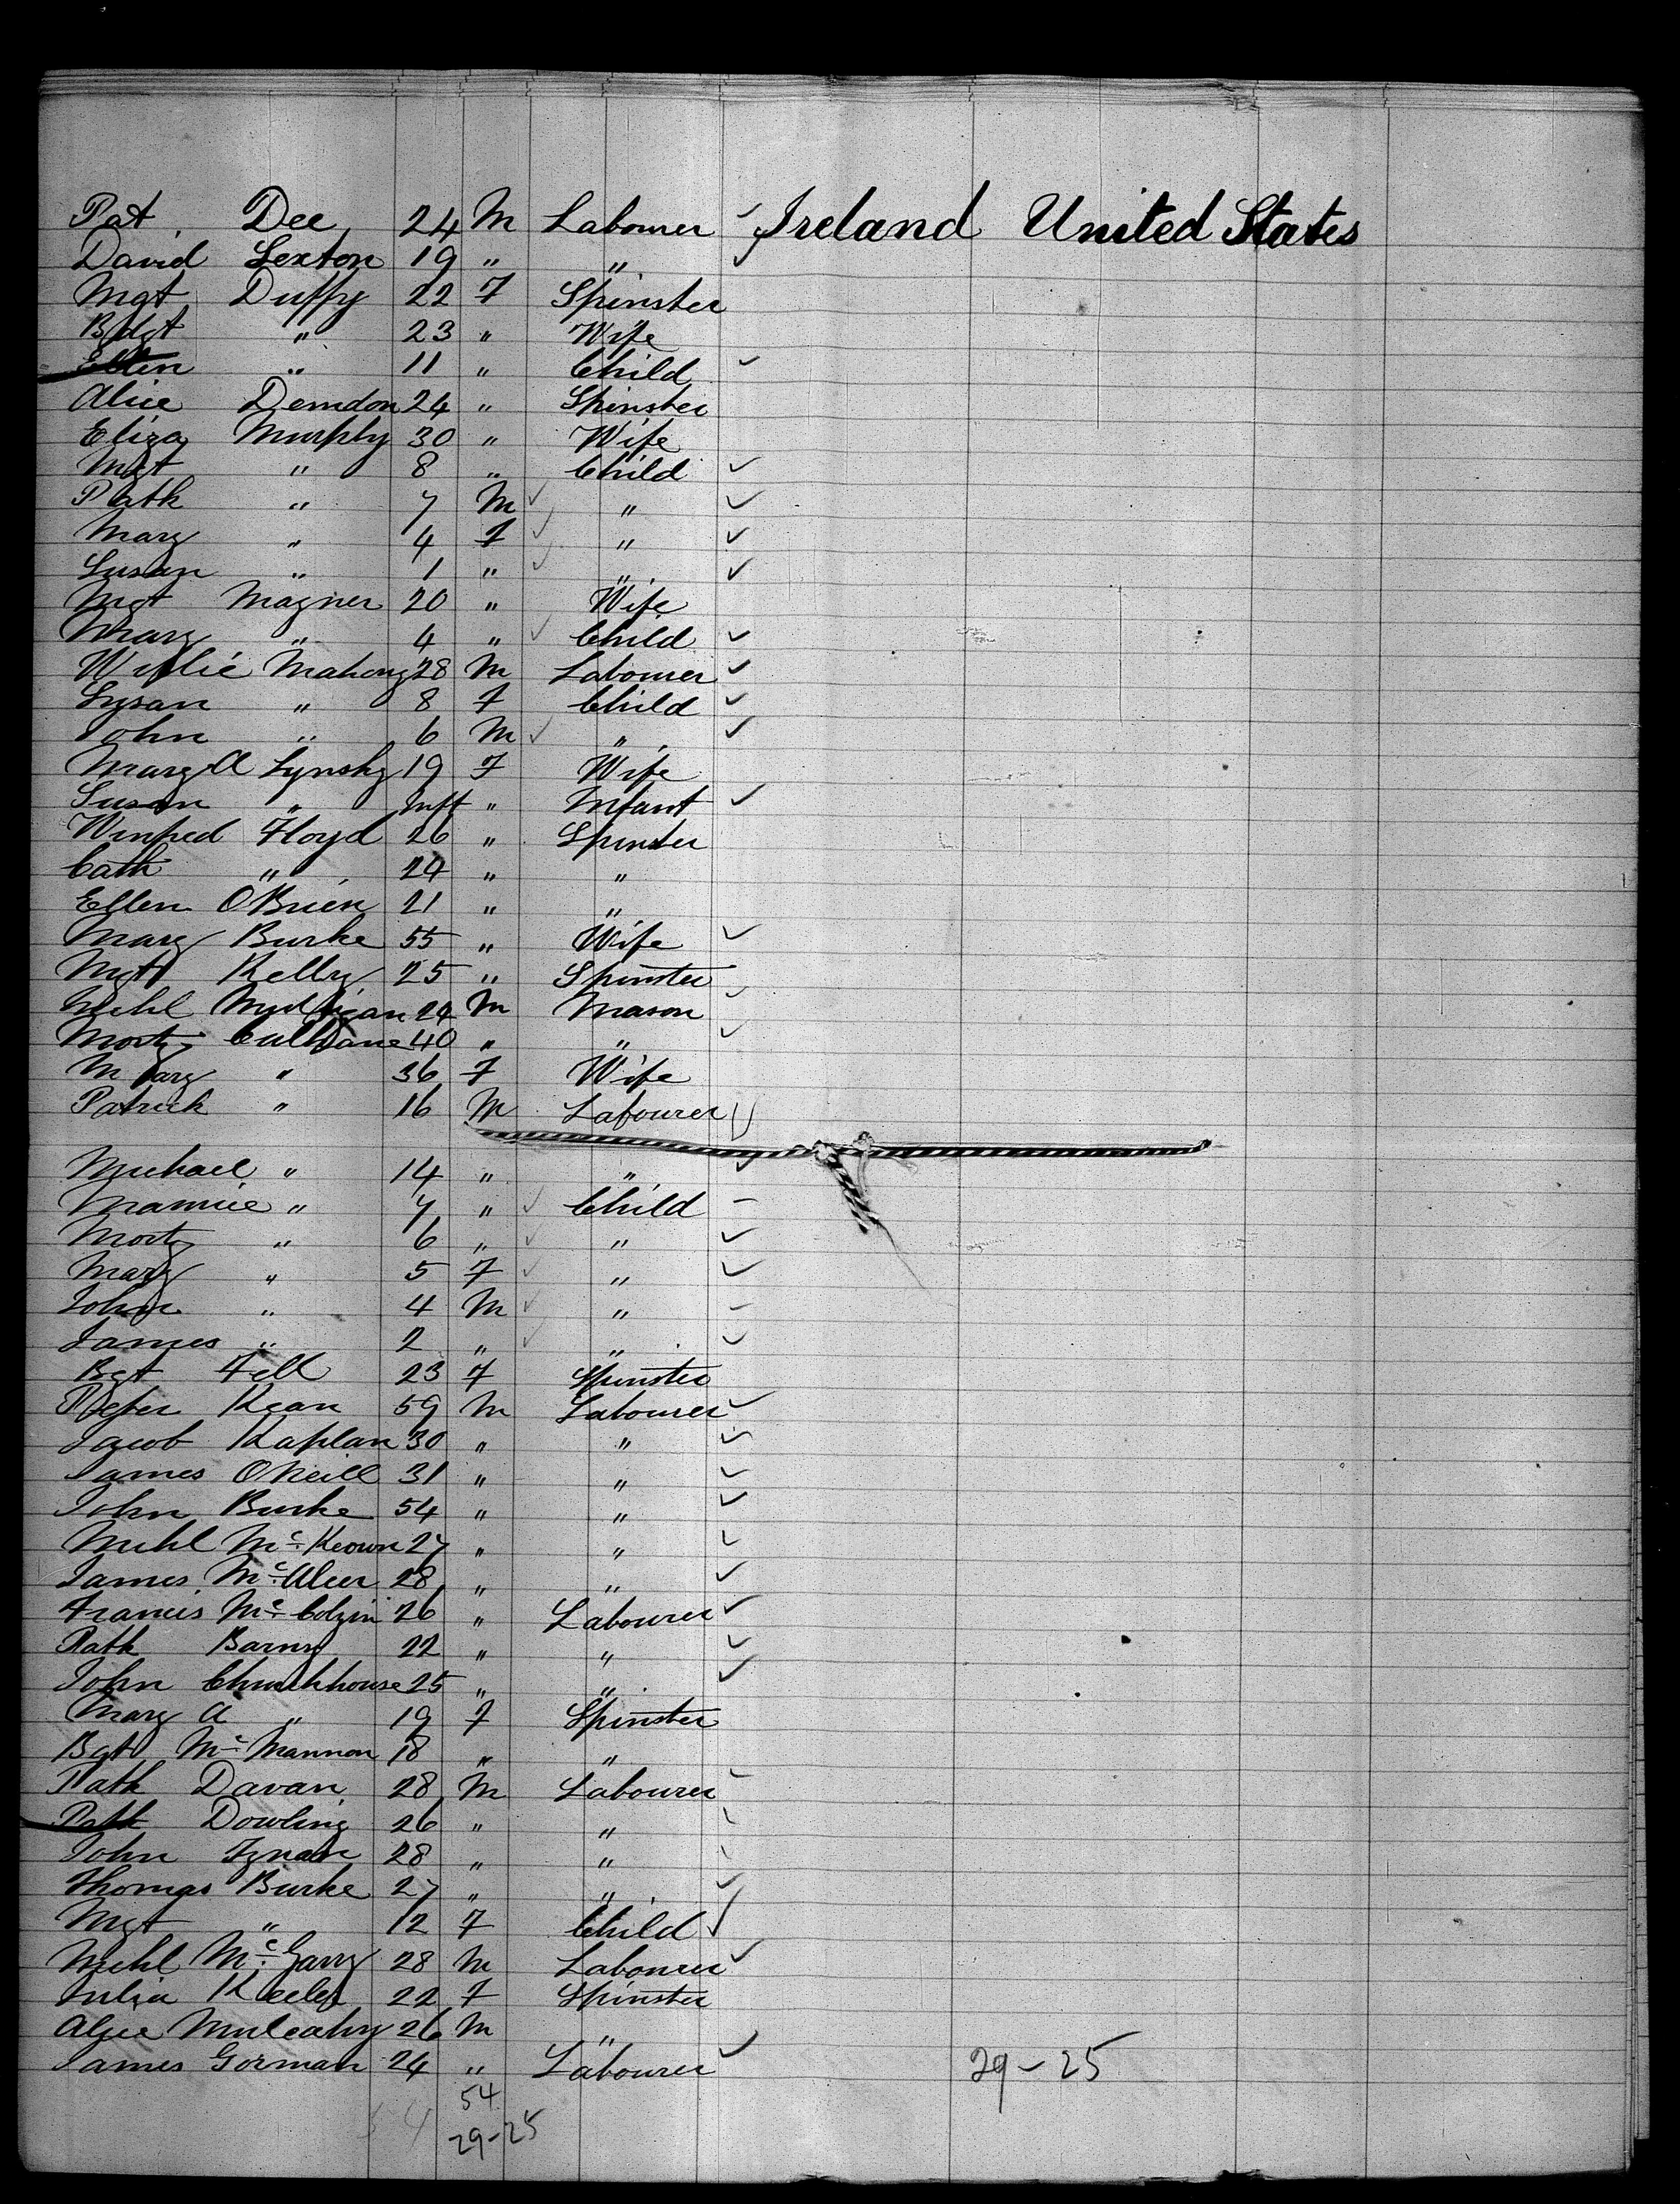 Pat Dee 24 M Labourer Ireland United States
David Sexton 19 " "
Mgt Duffy 22 F Spinster
Bdgt " 23 " Wife
Ellen " 11 " Child
Alice Demdon 24 " Spinster
Eliza Murphy 30 " Wife
Mgt " 8 " Child
Patk " 7 M "
Mary " 4 F "
Susan " 1 " "
Mgt Magner 20 " Wife
Mary " 4 " Child
Willie Mahony 28 M Labourer
Susan " 8 F Child
John " 6 M "
Mary A Lynsky 19 F Wife
Susan " Inft " Infant
Winfred Floyd 26 " Spinster
Cath " 24 " "
Ellen OBrien 21 " "
Mary Burke 55 " Wife
Mgt Kelly 25 " Spinster
Michl Mulligan 24 M Mason
Morty Culhane 40 " "
Mary " 36 F Wife
Patrick " 16 M Labourer
Michael " 14 " "
Maurice " 7 " Child
Morty " 6 " "
Mary " 5 F "
John " 4 M "
James " 2 " "
Bgt Fell 23 F Spinster
Peter Kean 59 M Labourer
Jacob Kaplan 30 " "
James ONeill 31 " "
John Burke 54 " "
Michl McKeown 27 " "
James McAleer 28 " "
Francis Mc 26 " Labourer
Patk Barny 22 " "
John Churchhouse 25 " "
Mary A " 19 F Spinster
Bgt McMannon 18 " "
Patk Davan 28 M Labourer
Patk Dowling 26 " "
John 28 " "
Thomas Burke 27 " "
Mgt " 12 F Child
Michl McGarry 28 M Labourer
Julia Keeley 22 F Spinster
Alice Mulcahy 26 M "
James Gorman 24 " Labourer 29-25
54 54
29-25